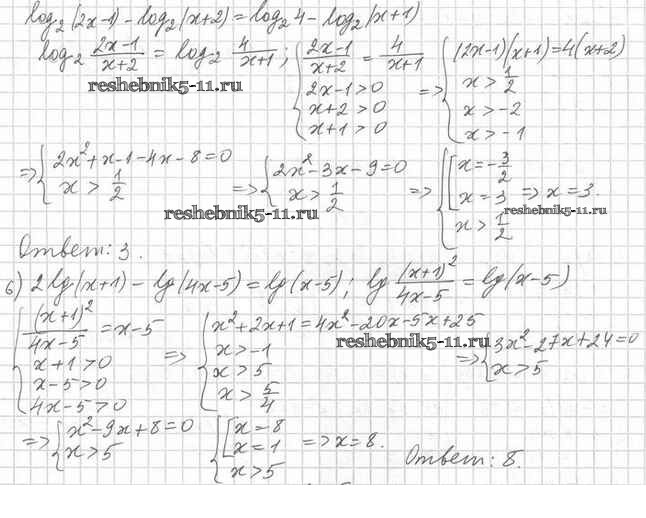 log₂(2x-1) - log₂(x+2) = log₂4 - log₂(x+1)
log₂ (2x-1)/(x+2) = log₂ 4/(x+1); { (2x-1)/(x+2) = 4/(x+1) 2x-1>0 x+2>0 x+1>0 => { (2x-1)(x+1)=4(x+2) x>1/2 x>-2 x>-1
reshebnik5-11.ru
=> { 2x²+x-1-4x-8=0 x>1/2 => { 2x²-3x-9=0 x>1/2 => { [ x=-3/2 x=3 x>1/2 => x=3.
reshebnik5-11.ru
reshebnik5-11.ru
Ответ: 3.
б) 2lg(x+1) - lg(4x-5) = lg(x-5); lg (x+1)²/(4x-5) = lg(x-5)
{ (x+1)²/(4x-5) = x-5 x+1>0 x-5>0 4x-5>0 => { x²+2x+1=4x²-20x-5x+25 x>-1 x>5 x>5/4 => { 3x²-27x+24=0 x>5
reshebnik5-11.ru
=> { x²-9x+8=0 x>5 { [ x=8 x=1 x>5 => x=8.
Ответ: 8.